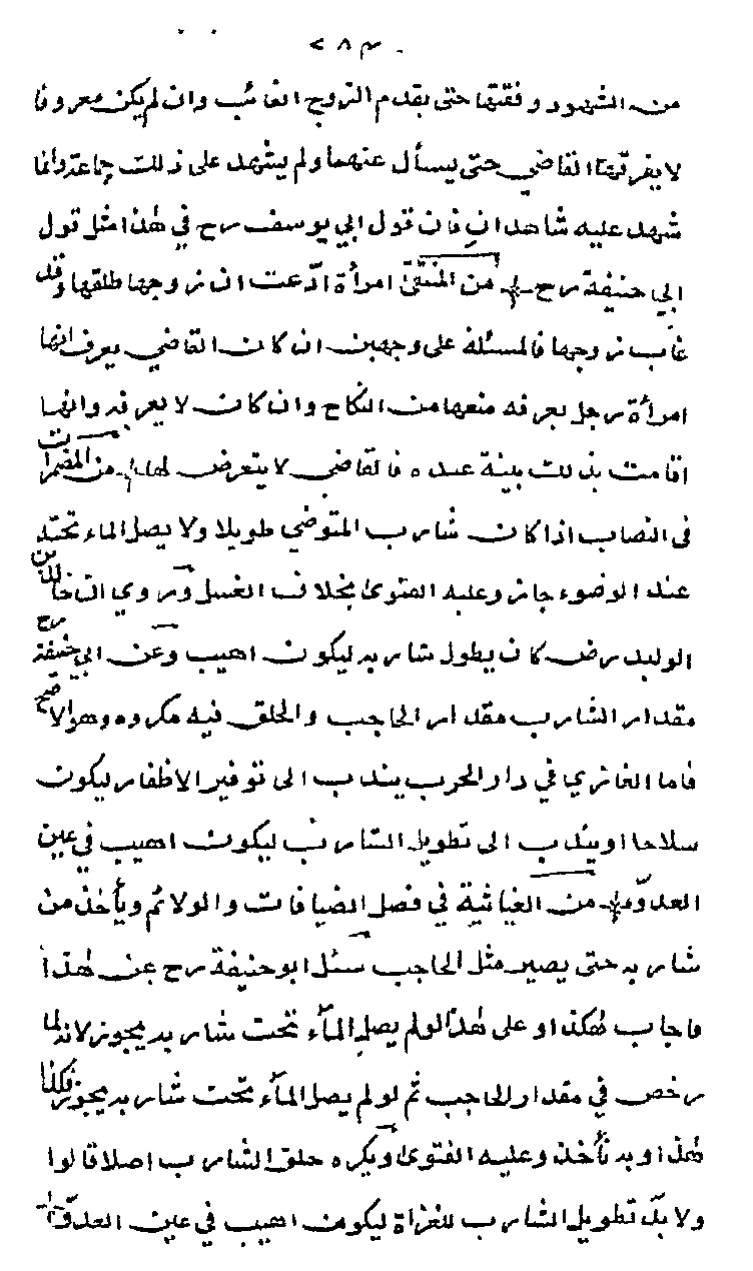 ٢٨٣
من الشهود و فقتها حتى يقدم الزوج الغائب وان لم يكن معروفا
لا يفرقهما القاضي حتى يسأل عنهما ولم يشهد على ذلك جماعة وانما
شهد عليه شاهدان فان قول ابي يوسف رح في هذا مثل قول
ابي حنيفة رح من المنتقى امرأة ادّعت ان زوجها طلقها وقد
غاب زوجها فالمسئلة على وجهين ان كان القاضي يعرف انها
امرأة رجل يعرفه منعها من النكاح وان كان لا يعرفه وانها
اقامت بذلك بينة عنده فالقاضي لا يتعرض لها من المضمرات
فى النصاب اذا كان شارب المتوضي طويلا ولا يصل الماء تحته
عند الوضوء جاز وعليه الفتوى بخلاف الغسل وروي ان خالد بن
الوليد رض كان يطول شاربه ليكون اهيب وعن ابي حنيفة رح
مقدار الشارب مقدار الحاجب والحلق فيه مكروه وهو الاصح
فاما الغازي في دار الحرب يندب الى توفير الاظفار ليكون
سلاحا ويندب الى تطويل الشارب ليكون اهيب في عين
العدوّ من الغياثية في فصل الضيافات والولائم ويأخذ من
شاربه حتى يصير مثل الحاجب سئل ابو حنيفة رح عن هذا
فاجاب هكذا وعلى هذا لو لم يصل المآء تحت شاربه يجوز لانه لما
رخص في مقدار الحاجب ثم لو لم يصل المآء تحت شاربه يجوز فكذا
هذا وبه نأخذ وعليه الفتوى ويكره حلق الشارب اصلا قالوا
ولا بدّ تطويل الشارب للغزاة ليكون اهيب في عين العدوّ